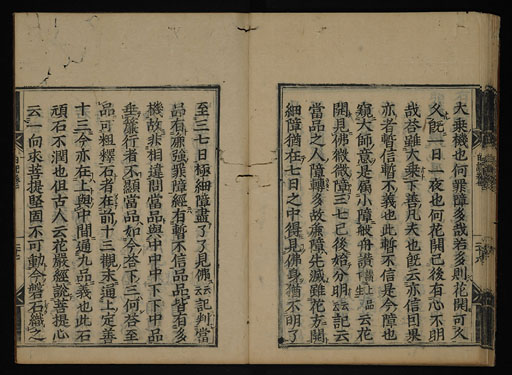 大乘機也何罪障多哉若多則花開可久
久既一日一夜也何花開已後有心不明
哉答雖大乘下善凡夫也既云亦信因果
亦者暫信暫不義也此暫不信是今障也
窺大師意是屬小障般舟讚云花
開見佛微微障三七已後始分明云云記云
當品之人障轉多故麁障先滅雖花方開
細障猶在七日之中得見佛身猶不明了
至三七日極細障盡了了見佛云云記判當
品有麁強罪障經有暫不信品品皆有多
機故非相違問當品與中中下下中品
垂麁行者不顯當品如今答下三何答至
品可粗釋石者在前十三觀末通上定善
十三今亦在上與中間通九品義也此石
頑石不潤也但古人云花嚴經說菩提心
云一向求菩提堅固不可動今磐石織之